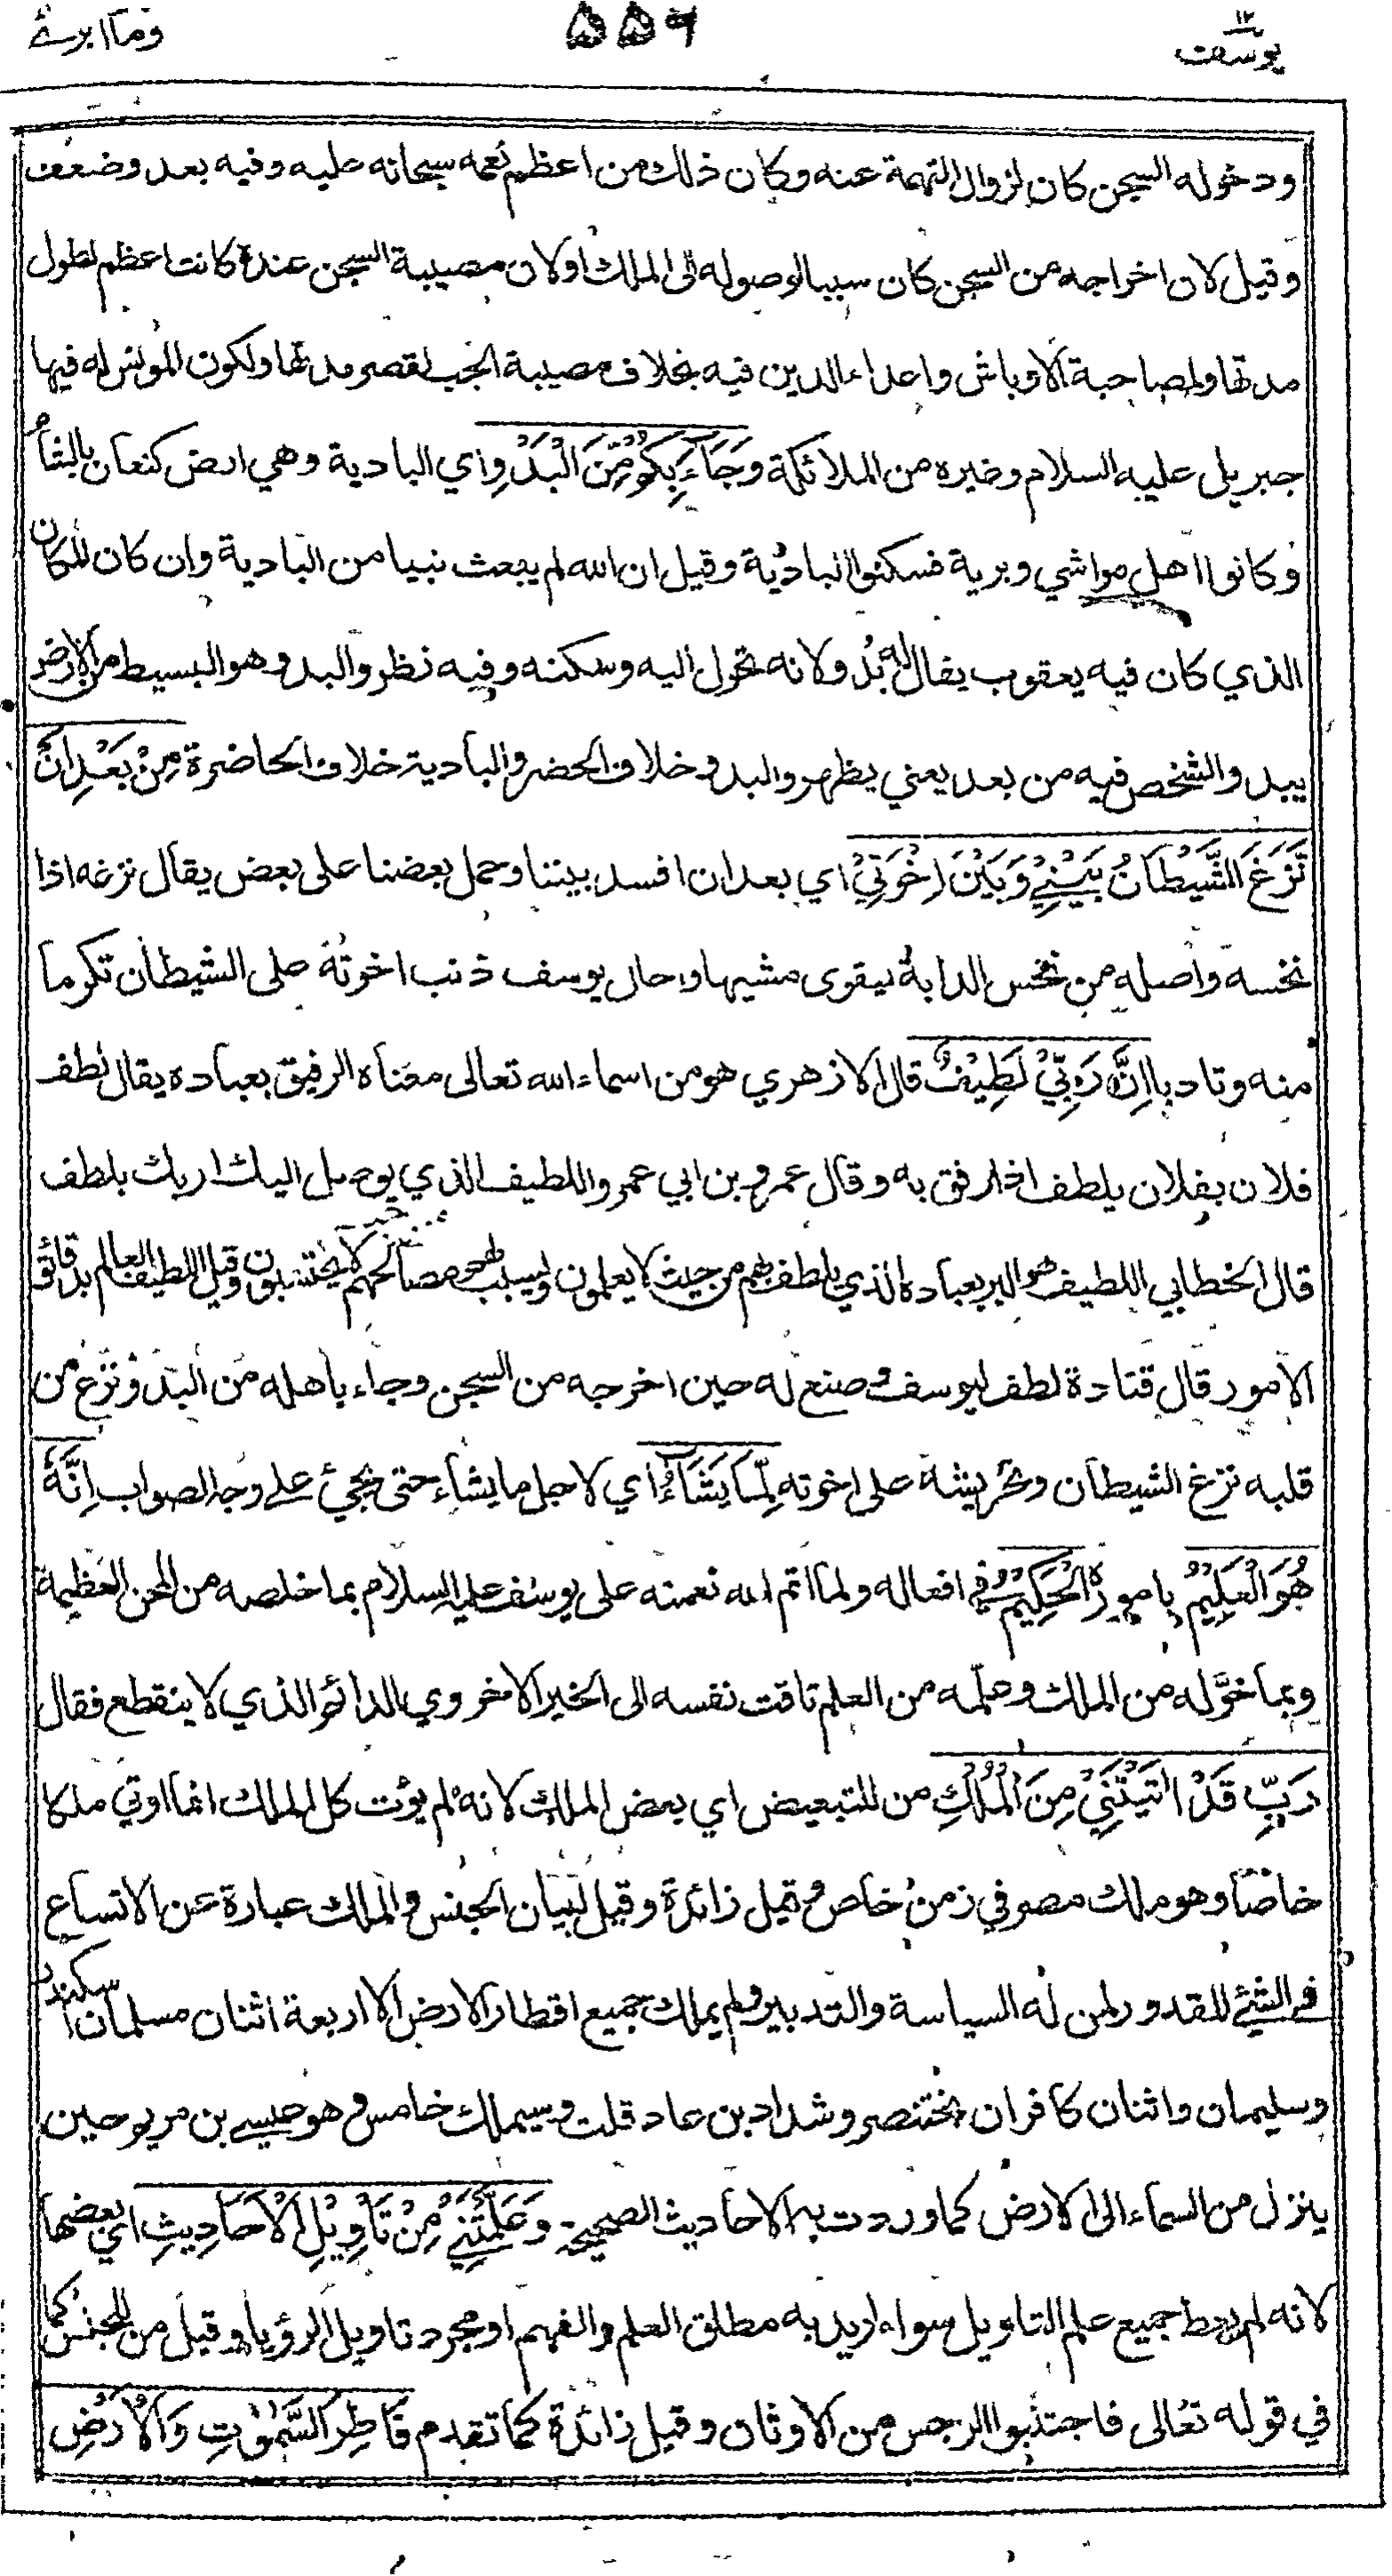 يوسف ١٢
٥٥٦
وما ابرئ
ودخوله السجن كان لزوال التهمة عنه وكان ذلك من اعظم نعمه سبحانه عليه وفيه بعد وضعف
وقيل لان اخراجه من السجن كان سببا لوصوله الى الملك او لان مصيبة السجن عنده كانت اعظم لطول
مدتها ولمصاحبة الاوباش واعداء الدين فيه بخلاف مصيبة الجب لقصر مدتها ولكون المونس له فيها
جبريل عليه السلام وغيره من الملائكة وَجَآءَ بِكُمْ مِّنَ الْبَدْوِ اي البادية وهي ارض كنعان بالشام
وكانوا اهل مواشي وبرية فسكنوا البادية وقيل ان الله لم يبعث نبيا من البادية وان كان المكان
الذي كان فيه يعقوب يقال له بدو لانه تحول اليه وسكنه وفيه نظر والبدو هو البسيط من الارض
يبدو الشخص فيه من بعد يعني يظهر والبدو خلاف الحضر والبادية خلاف الحاضرة مِنْ بَعْدِ اَنْ
نَّزَغَ الشَّيْطَانُ بَيْنِيْ وَبَيْنَ اِخْوَتِيْ اي بعد ان افسد بيننا وحمل بعضنا على بعض يقال نزغه اذا
نخسه واصله من نخس الدابة ليقوى مشيها واحال يوسف ذنب اخوته على الشيطان تكرما
منه وتادبا اِنَّ رَبِّيْ لَطِيْفٌ قال الازهري هو من اسماء الله تعالى معناه الرفيق بعباده يقال لطف
فلان بفلان يلطف اذا رفق به وقال عمرو بن ابي عمرو اللطيف الذي يوصل اليك اربك بلطف
قال الخطابي اللطيف هو البر بعباده الذي يلطف بهم من حيث لا يعلمون ويسبب لهم مصالحهم من حيث لا يحتسبون وقيل اللطيف العالم بدقائق
الامور قال قتادة لطف ليوسف وصنع له حين اخرجه من السجن وجاء باهله من البدو ونزع من
قلبه نزغ الشيطان وتحريشه على اخوته لِّمَا يَشَآءُ اي لاجل ما يشاء حتى يجئ على وجه الصواب اِنَّهٗ
هُوَ الْعَلِيْمُ باموره الْحَكِيْمُ في افعاله ولما اتم الله نعمته على يوسف عليه السلام بما خلصه من المحن العظيمة
وبما خوّله من الملك وعلّمه من العلم تاقت نفسه الى الخير الاخروي الدائم الذي لا ينقطع فقال
رَبِّ قَدْ اٰتَيْتَنِيْ مِنَ الْمُلْكِ من للتبعيض اي بعض الملك لانه لم يؤت كل الملك انما اوتي ملكا
خاصا وهو ملك مصر في زمن خاص وقيل زائدة وقيل لبيان الجنس والملك عبارة عن الاتساع
في الشئ المقدور لمن له السياسة والتدبير ولم يملك جميع اقطار الارض الا اربعة اثنان مسلمان اسكندر
وسليمان واثنان كافران بختنصر وشداد بن عاد قلت وسيملك خامس وهو عيسى بن مريم حين
ينزل من السماء الى الارض كما وردت به الاحاديث الصحيحة وَعَلَّمْتَنِيْ مِنْ تَاْوِيْلِ الْاَحَادِيْثِ اي بعضها
لانه لم يحط جميع علم التاويل سواء اريد به مطلق العلم والفهم او مجرد تاويل الرؤيا وقيل من للجنس كما
في قوله تعالى فاجتنبوا الرجس من الاوثان وقيل زائدة كما تقدم فَاطِرَ السَّمٰوٰتِ وَالْاَرْضِ